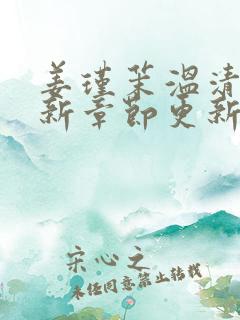 姜瑾茉温清
新章节更新
宋心之
未经同意禁止转载